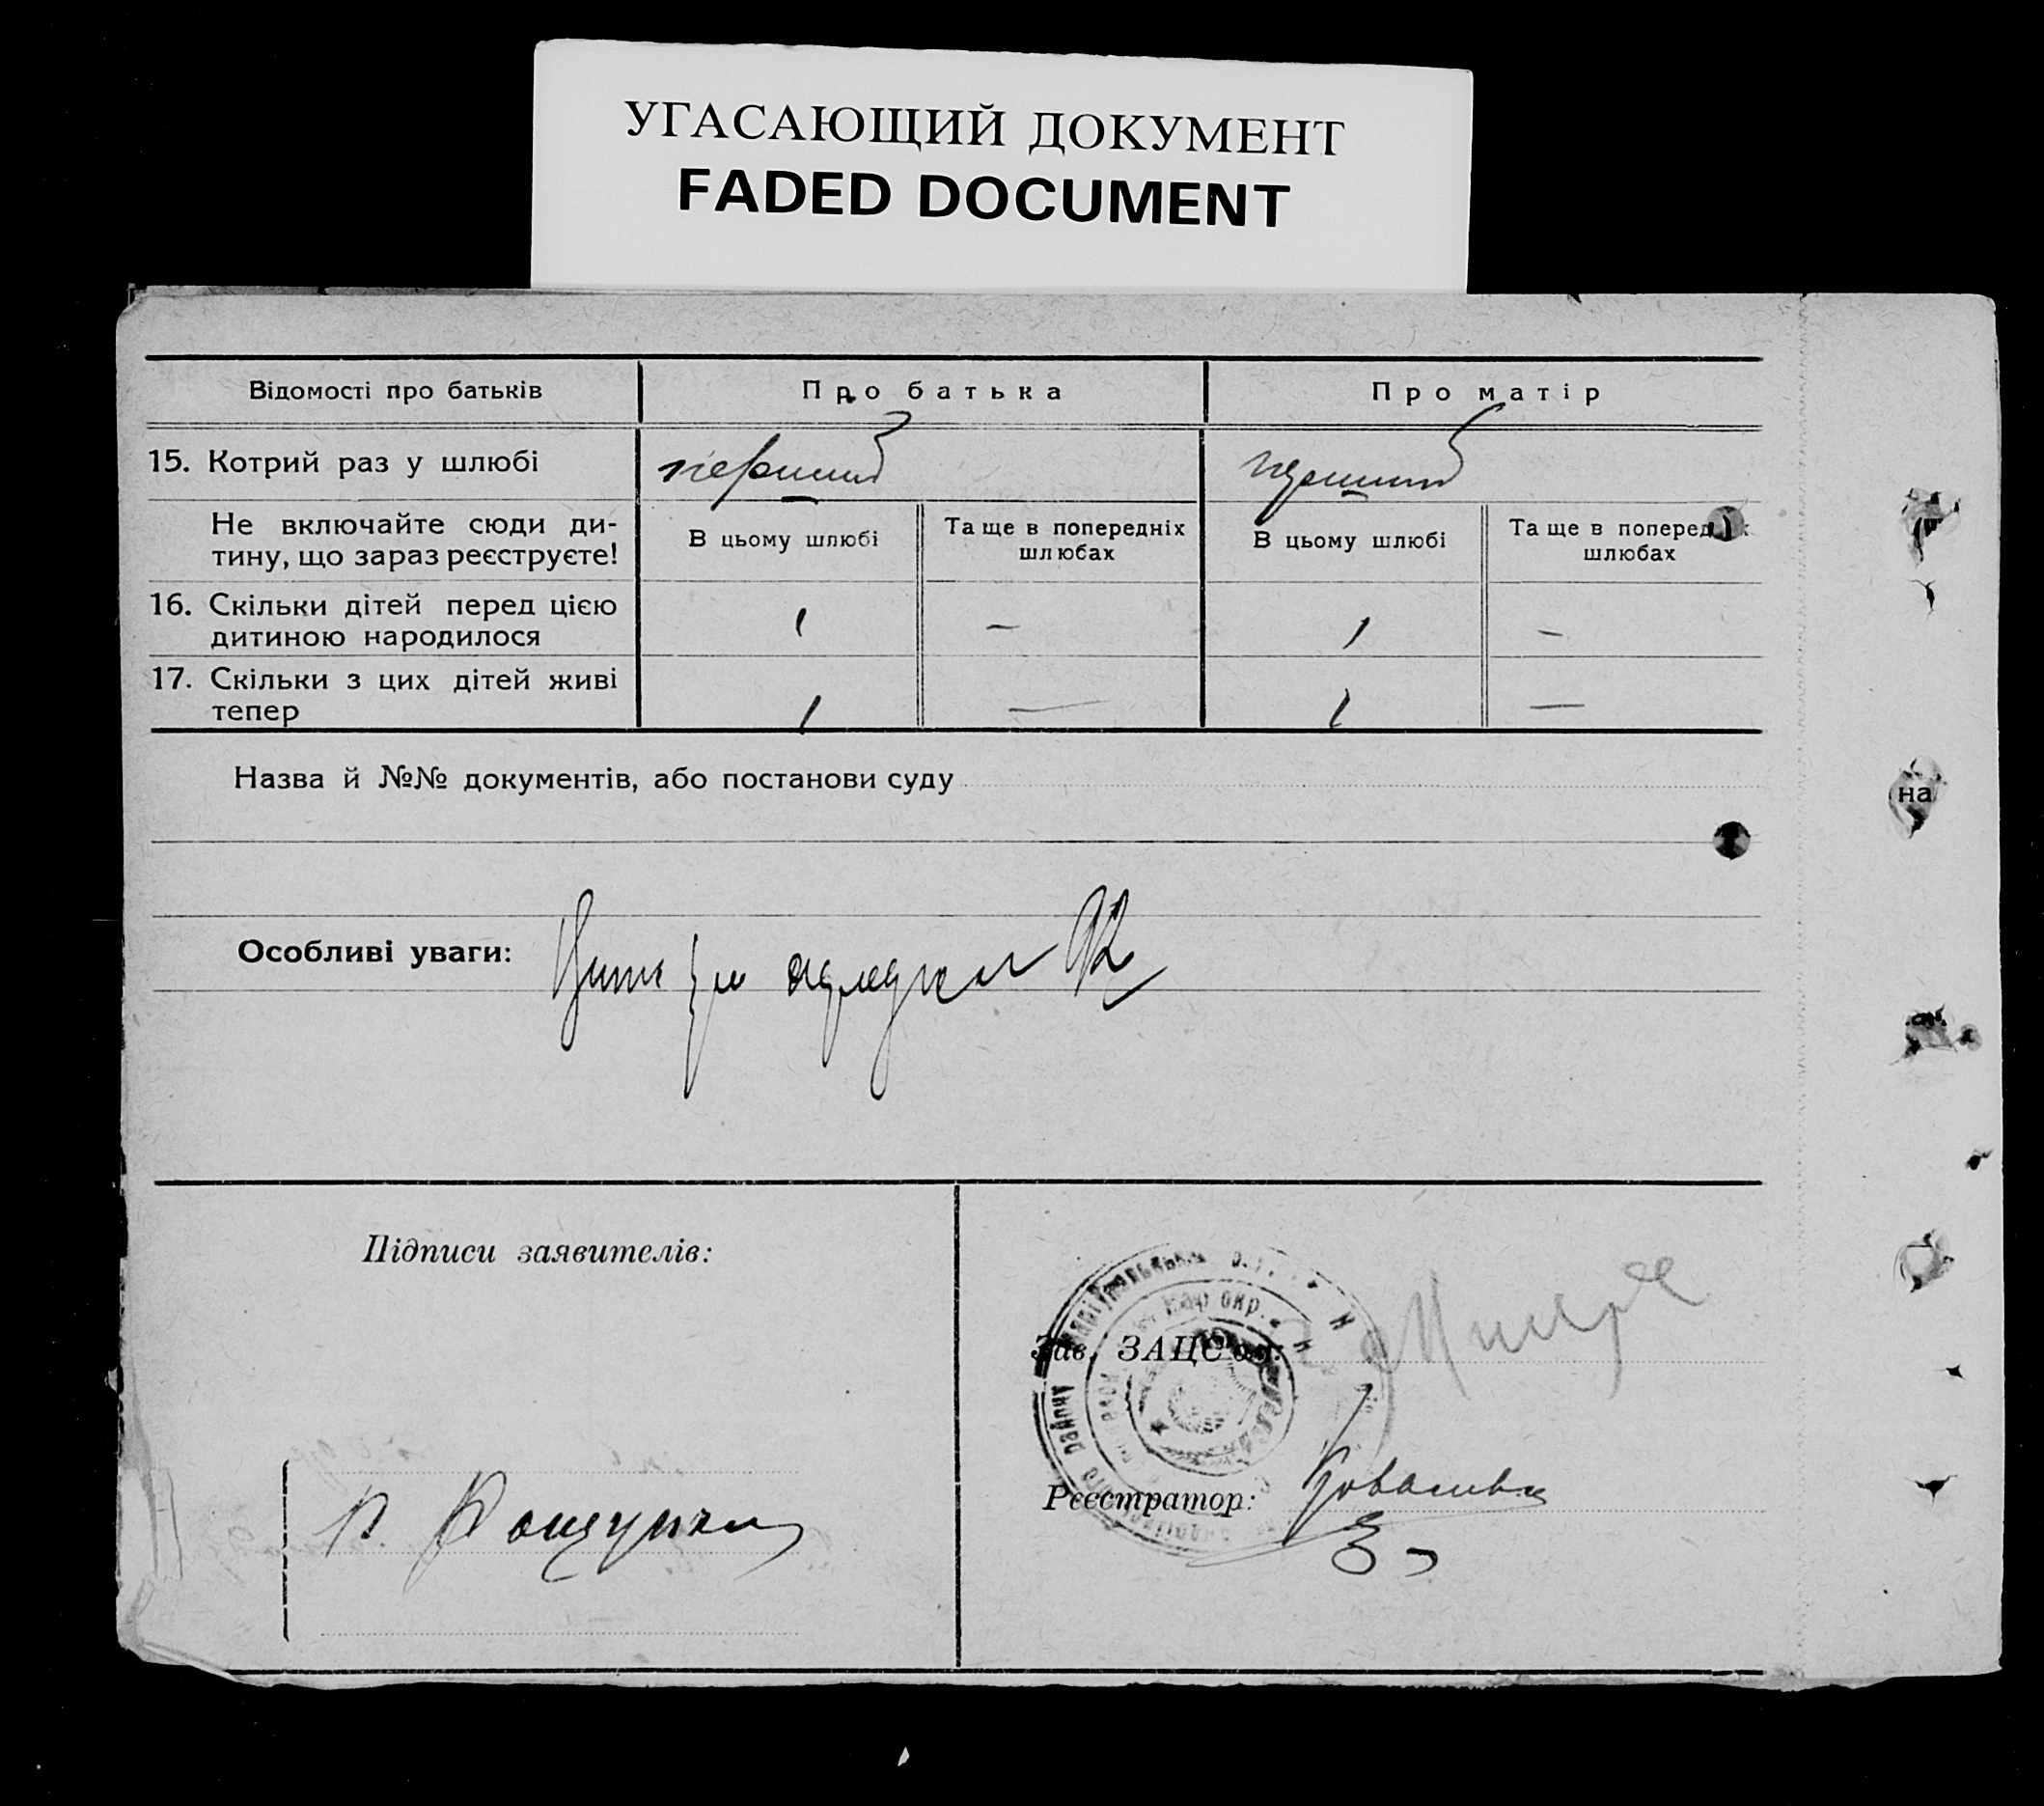 УГАСАЮЩИЙ ДОКУМЕНТ
FADED DOCUMENT
Відомості про батьків
Про батька
Про матір
15. Котрий раз у шлюбі
перший
перший
Не включайте сюди ди-
тину, що зараз реєструєте!
В цьому шлюбі
Та ще в попередніх
шлюбах
В цьому шлюбі
Та ще в поперед
шлюбах
16. Скільки дітей перед цією
дитиною народилося
1
—
1
—
17. Скільки з цих дітей живі
тепер
1
—
1
—
Назва й №№ документів, або постанови суду
на
Особливі уваги:
Підписи заявителів:
окр.
Зав. ЗАЦСом:
району
Реєстратор: